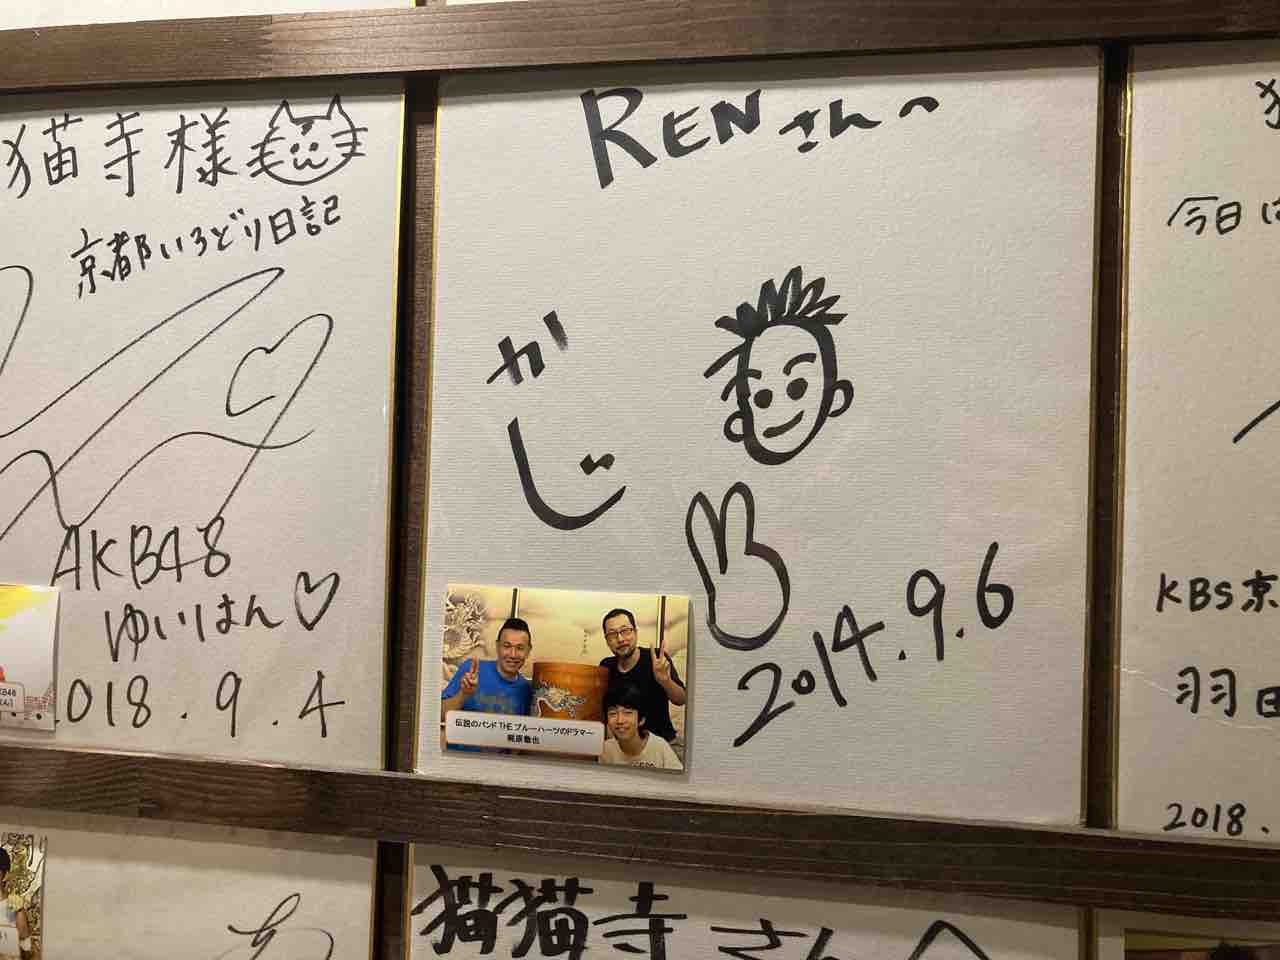 猫寺様
京都いろどり日記
AKB48
ゆいはん♡
2018.9.4
RENさんへ
かじ
2014.9.6
伝説のバンド THE ブルーハーツのドラマー
梶原徹也
今日は
KBS京
羽田
2018.
猫猫寺さんへ